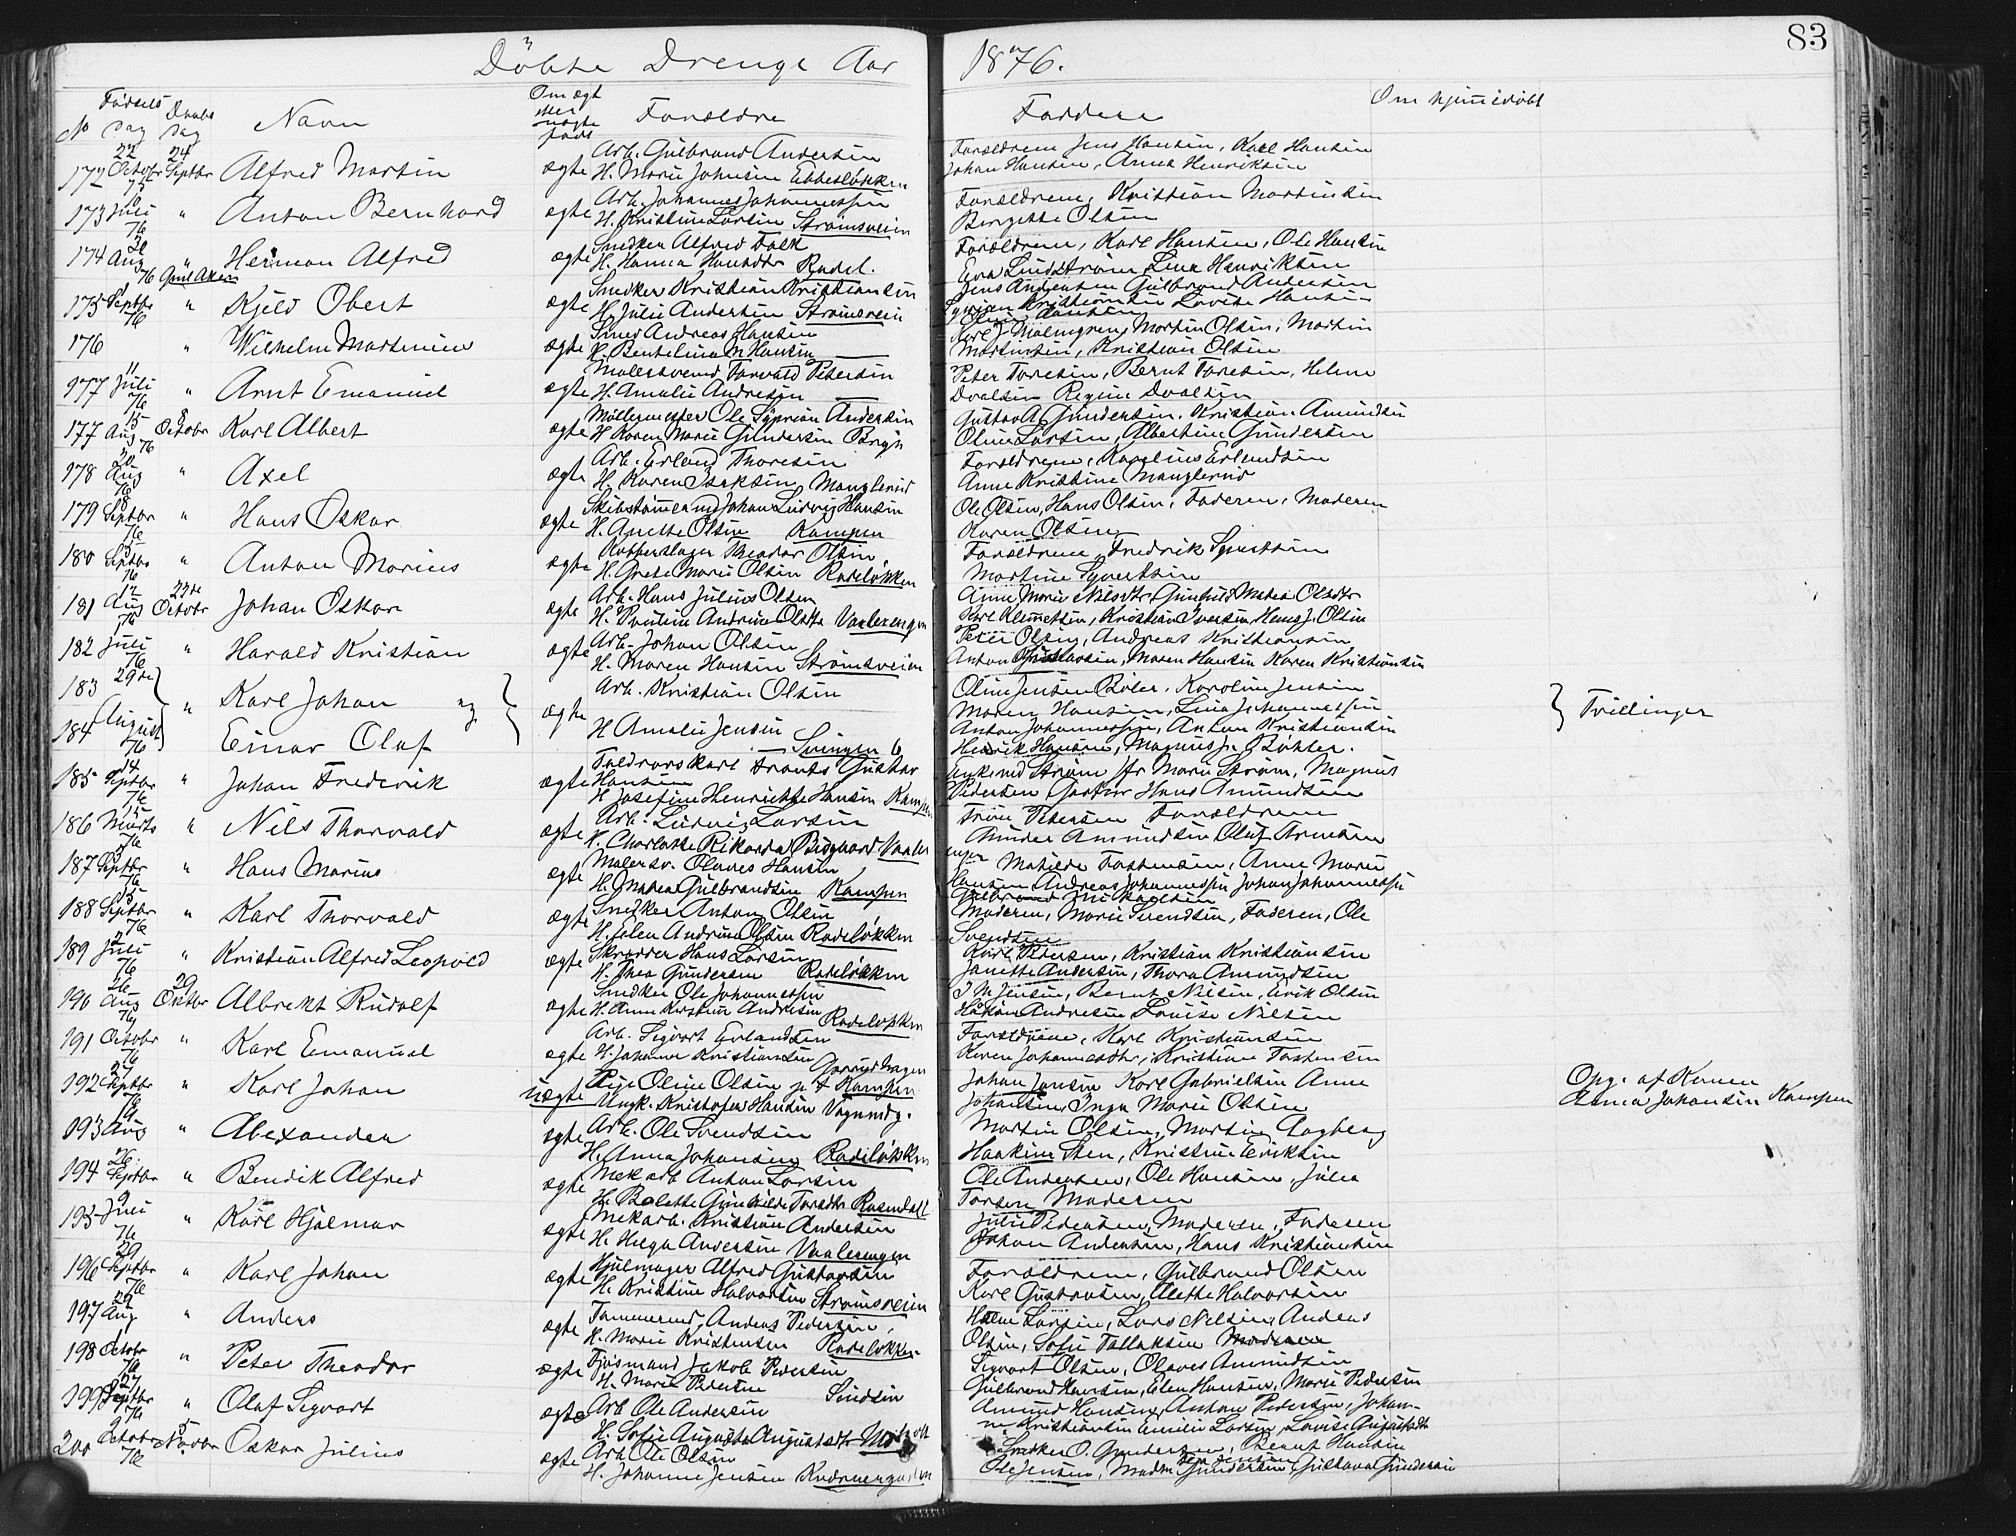 83
Döbte Drenge Aar 1876.
No Fødsels Dag Daabs Dag Navn Om ægt eller uægte født Foreldre Faddere Om hjemmedøbt
172 22 Octobr 75 24 Septbr Alfred Martin ægte Arb. Gulbrand Andersen
H. Marie Johnsen Ebbesløkken
Foreldrene Jens Hansen, Karl Hansen
Johan Hansen, Anna Henriksen
173 Juli 76 " Anton Bernhard ægte Arb. Johannes Johannessen
H. Kristine Larsen Strømsveien
Foreldrene, Kristian Martinsen
Birgitte Olsen
174 Aug 76 " Herman Alfred ægte Snedker Alfred Falk
H. Hanna Hansdtr Radel.
Foreldrene, Karl Hansen, Ole Hansen
Eva Lindstrøm Lina Henriksen
175 1 Septbr 76 " Kjeld Obert ægte Snedker Kristian Kristiansen
H. Julie Andersen Strømsveien
Jens Andersen Gulbrand Andersen
Kristiansen Lovise Hansen
176 " Wilhelm Martinius ægte Smed Andreas Hansen
H. Bentelina M Hansen
Karl J Malmgren, Martin Olsen, Martin
Martinsen, Kristian Olsen
177 11 Juli 76 " Arnt Emanuel ægte Malersvend Torvald Petersen
H. Amalie Andresen
Peter Toresen, Bernt Toresen, Helene
Dvalsen Regine Dvalsen
177 15 Aug 76 8 Octobr Karl Albert ægte Møllermester Ole Syprian Andersen
H Karen Marie Gundersen Bryn
Gustav A Gundersen, Kristian Amundsen
Oline Larsen, Albertine Gundersen
178 20 Aug 76 " Axel ægte Arb. Erland Thoresen
H. Karen Isaksen Manglerud
Foreldrene, Karelius Erlendsen
Anne Kristine Manglerud
179 18 Septbr 76 " Hans Oskar ægte Skibstømmermd Johan Ludvig Hansen
H. Anette Olsen Kampen
Ole Olsen, Hans Olsen, Faderen, Moderen
Karen Olsen
180 3 Septbr 76 " Anton Marius ægte Kobberslager Theodor Olsen
H. Grete Marie Olsen Rodeløkken
Foreldrene, Fredrik Syvertsen
Martine Syvertsen
181 12 Aug 76 22de Octobr Johan Oskar ægte Arb. Hans Julius Olsen
H. Pauline Andrine Olsdtr Vaalerengen
Anne Marie Nilsdtr Gunhild Matea Olsdtr
Karl Klemetsen, Kristian Iversen Hans J. Olsen
182 Juli 76 " Harald Kristian ægte Arb. Johan Olsen
H. Maren Hansen Strømsveien
Peter Olsen, Andreas Kristiansen
Anton Gustavsen, Maren Hansen Karen Kristiansen
183 29de August 76 " Karl Johan og
184 Einar Olaf ægte Arb. Kristian Olsen
H Amalie Jensen
Svingen 6
Oline Jensen Bøler, Karoline Jensen
Maren Hansen, Lina Johannessen
Anton Johannessen, Anton Kristiansen
Henrik Hansen, Magnus Bøhler.
Tvillinger
185 14 Septbr 76 " Johan Frederik ægte Toldrorskarl Frants Gustav
Hansen
H Josefine Henriette Hansen Kampen
Enkemd Strøm, Jfr Marie Strøm, Magnus
Pedersen Gartner Hans Amundsen
186 15 Marts 76 " Nils Thorvald ægte Arb. Ludvig Larsen
H. Charlotte Rikarda Bisgaard Vaaler
enger
Trine Petersen Foreldrene
Gunder Amundsen Oluf Arnesen
187 Septbr 76 " Hans Marius ægte Malersv. Olaves Hansen
H. Maren Gulbrandsen Kampen
Matilde Torstensen, Anne Marie
Hansen Andreas Johannessen Johan Johannessen
Gulbrand Mikaelsen
188 15 Septbr 76 " Karl Thorvald ægte Snedker Anton Olsen
H. Helen Andrine Olsen Rodeløkken
Moderen, Marie Svendsen, Faderen, Ole
Svendsen
189 Juli 76 " Kristian Alfred Leopold ægte Skrædder Hans Larsen
H. Thea Gundersen Rodeløkken
Karl Pedersen, Kristian Kristiansen
Janette Andersen, Thora Amundsen
190 26 Aug 76 29 Octobr Albrekt Rudolf ægte Snedker Ole Johannessen
H. Anne Kirstine Andresen Rodeløkken
J M Jensen, Bernt Nilsen, Erik Olsen
Håkon Andresen Lovise Nilsen
191 Octobr 76 " Karl Emanuel ægte Arb. Sigvart Erlandsen
H. Johanne Kristiansen
Foreldrene, Karl Kristiansen
Karen Johannesdtr, Kristian Torstensen
192 27 Septbr 76 " Karl Johan uægte Pige Oline Olsen Kampen
Ungk. Kristofer Hansen Vognmdg.
Johan Jansen Karl Gabrielsen Anne
Johansen, Inga Marie Olsen
Opg. af Konen
Anna Johansen Kampen
193 19 Aug " Alexander ægte Arb. Ole Svendsen
H. Anna Johansen Rodeløkken
Martin Olsen, Martin Aagberg
Haakine Sten, Kristine Eriksen
194 26 Septbr " Bendik Alfred ægte Mekarb Anton Larsen
H. Bolette Gunhilde Torsdtr Rosendal
Ole Andersen, Ole Hansen, Julia
Torsen Moderen
195 9 Juli 76 " Karl Hjalmar ægte Mekarb. Kristian Andersen
H. Helga Andersen Vaalerengen
Julie Pedersen, Moderen, Faderen
Johan Andersen, Hans Kristiansen
196 29 Septbr 76 " Karl Johan ægte Hjulmager Alfred Gustavsen
H. Kristine Halvorsen Strømsveien
Foreldrene, Gulbrand Olsen
Karl Gustavsen, Alette Halvorsen
197 29 Aug " Anders ægte Tømmermd Anders Pedersen
H. Marie Kristensen Rodeløkken
Helene Larsen, Lars Nelsen, Anders
Olsen, Sofie Tallaksen Moderen
198 1 Octobr 76 " Peter Theodor ægte Fjøsmand Jakob Pedersen
H. Marie Pedersen Sindsen
Sigvart Olsen, Olaves Amundsen
Gulbrand Hansen, Elen Hansen, Marie Pedersen
199 27 Septbr 76 " Olaf Sigvart ægte Arb Ole Andersen
H. Sofie Auguste Augustsdtr
Amund Hansen, Anton Pedersen, Johan-
ne Kristiansen Emilie Larsen, Lovise Augustsdtr
200 9 Octobr 76 5 Novbr Oskar Julius ægte Arb Ole Olsen
H. Johanne Jensen
Snedker O. Gundersen, Bernt Hansen
Ole Jensen, Madm Gundersen, Gustava Gundersen